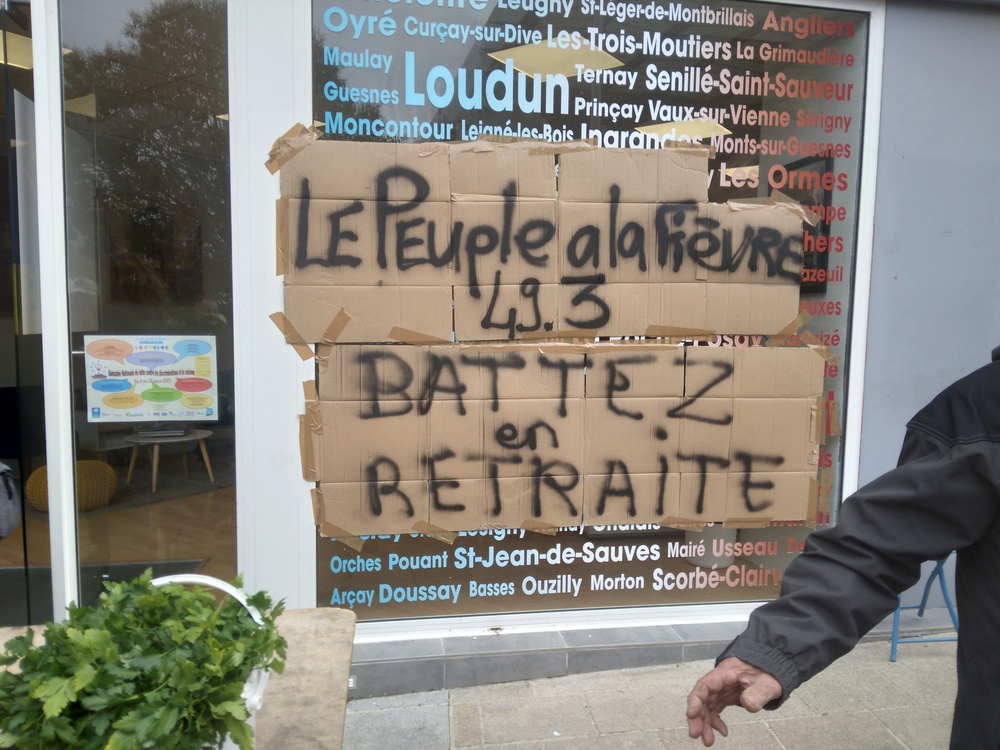 Leugny St-Léger-de-Montbrillais Angliers
Oyré Curçay-sur-Dive Les-Trois-Moutiers La Grimaudière
Maulay Loudun Ternay Senillé-Saint-Sauveur
Guesnes Prinçay Vaux-sur-Vienne Sérigny
Moncontour Leigné-les-Bois Ingrandes Monts-sur-Guesnes
Les Ormes
LE PEuple a la FièVRE
49.3
BATTEZ
en
RETRAiTE
Orches Pouant St-Jean-de-Sauves Mairé Usseau
Arçay Doussay Basses Ouzilly Morton Scorbé-Clairv